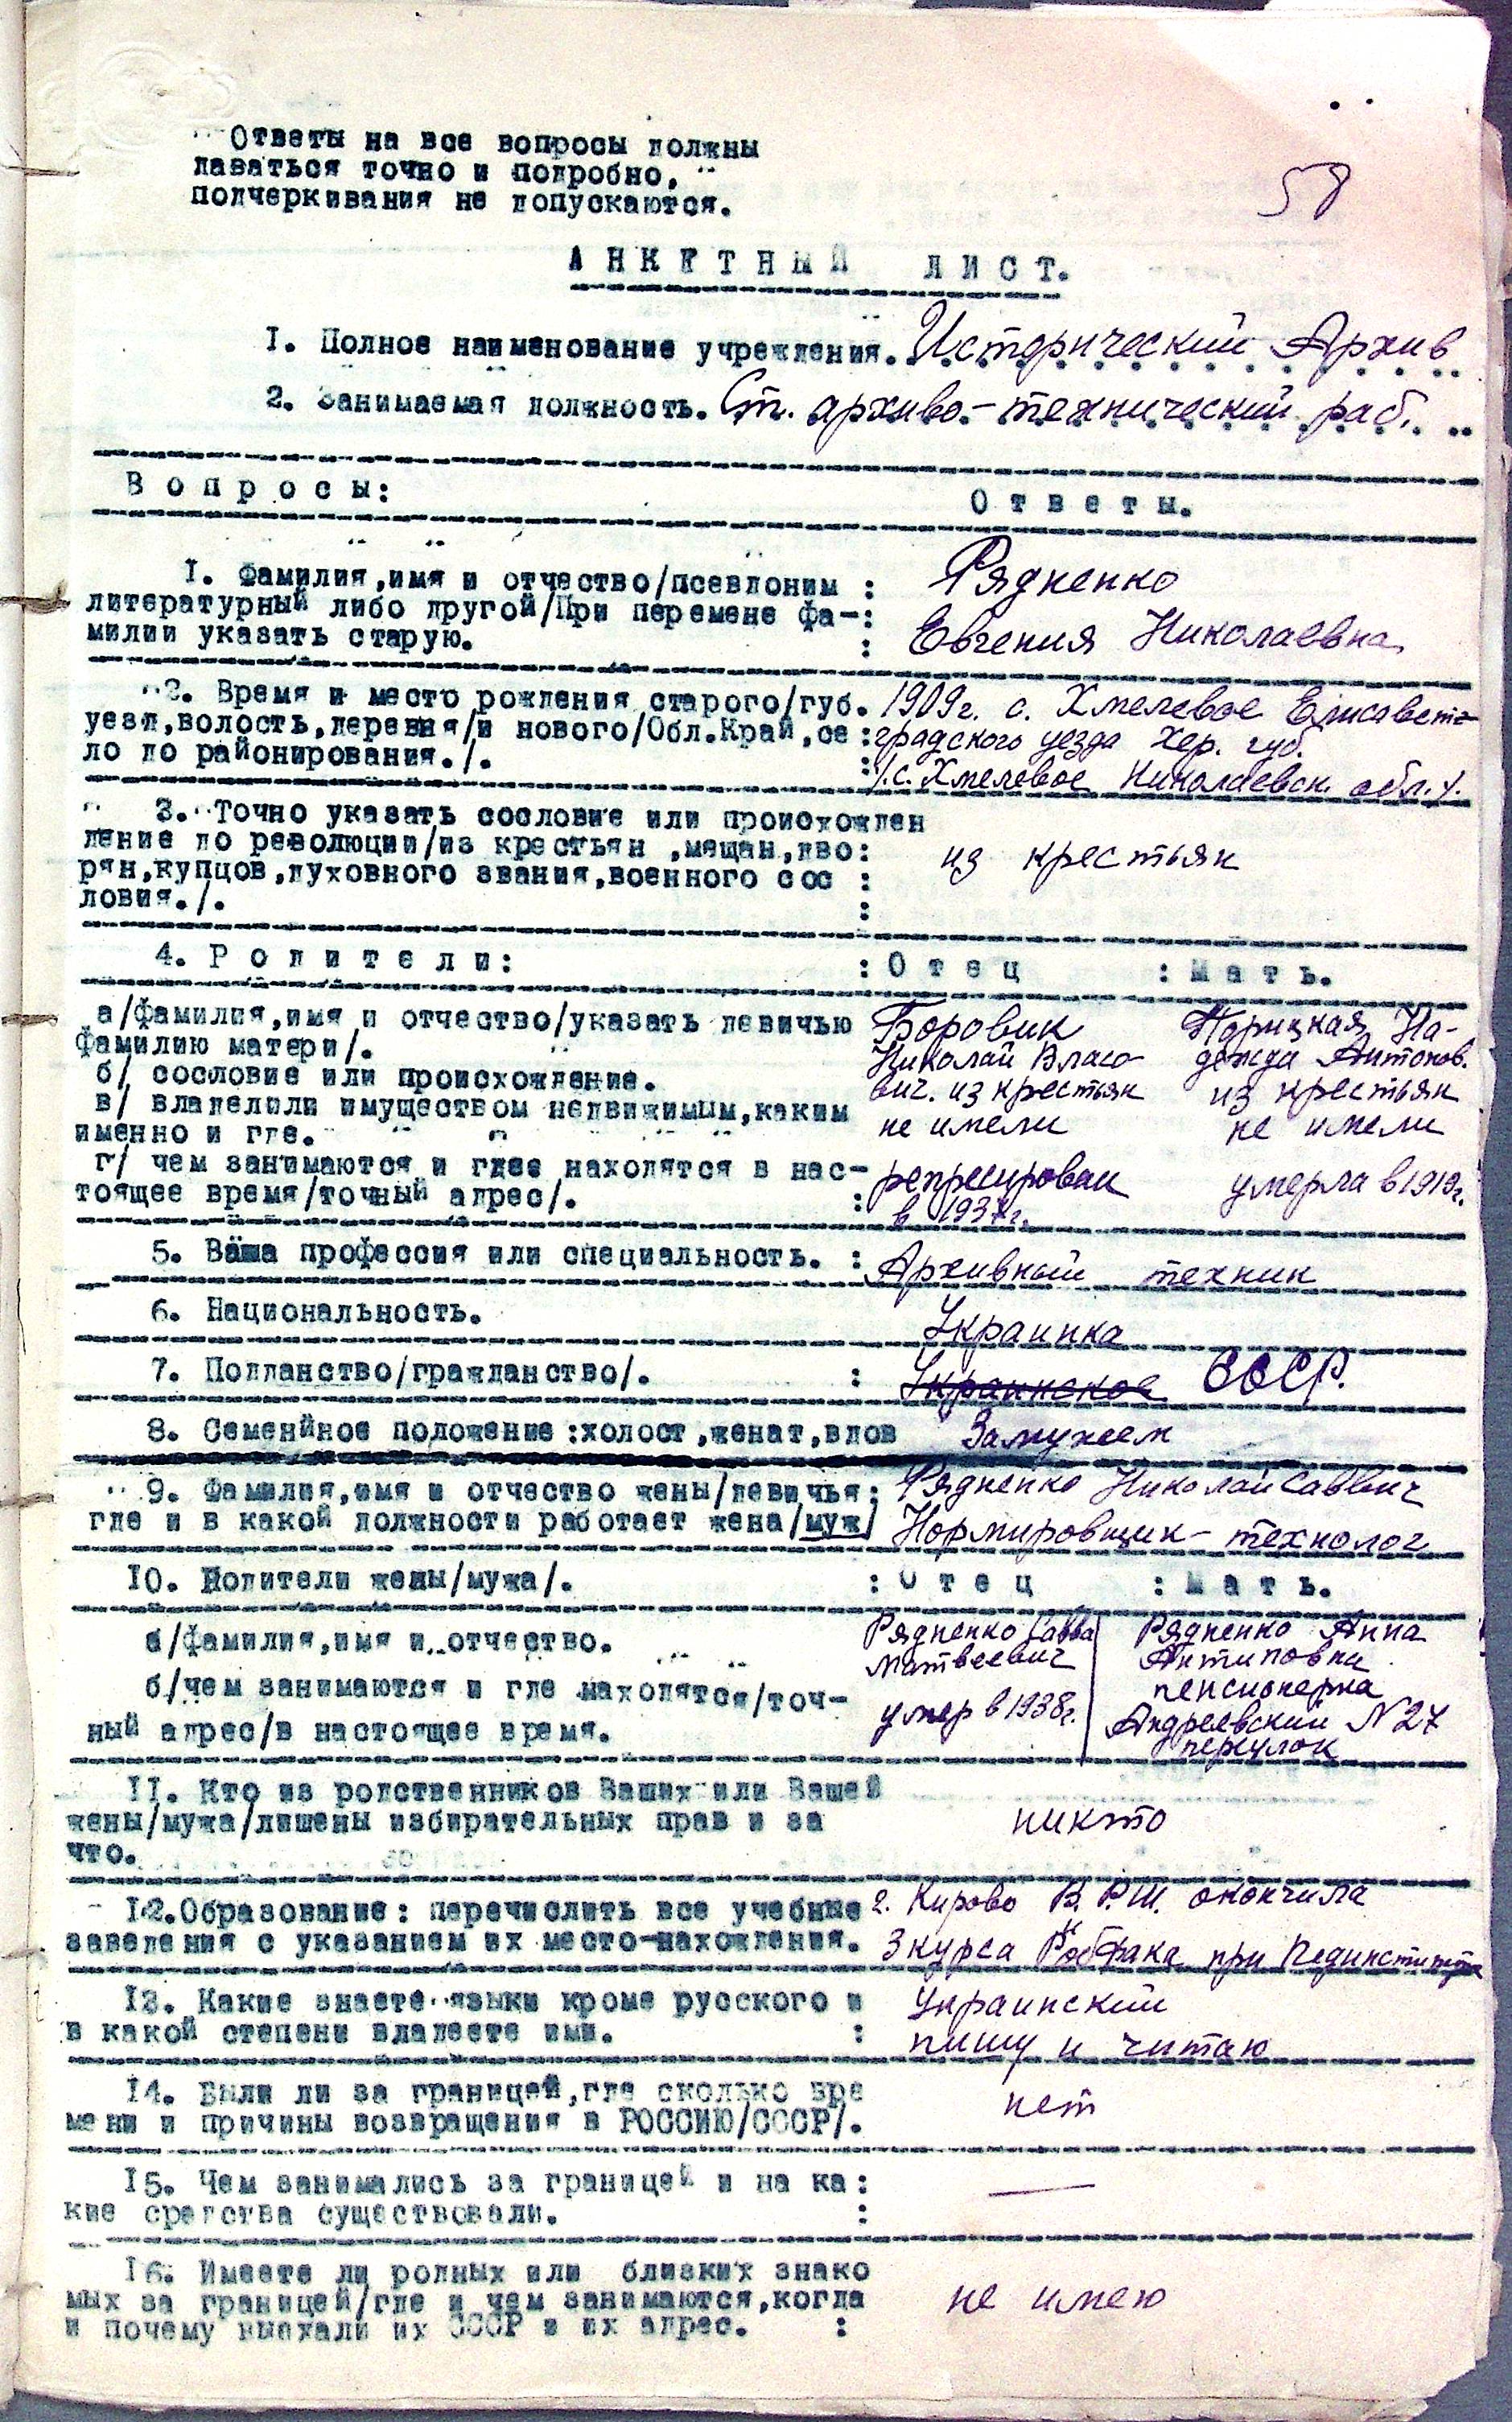 Ответы на все вопросы должны
даваться точно и подробно,
подчеркивания не допускаются.
58
АНКЕТНЫЙ ЛИСТ.
1. Полное наименование учреждения. Исторический Архив
2. Занимаемая должность. Ст. архиво-технический раб.
Вопросы:
Ответы.
1. Фамилия,имя и отчество/псевдоним :
литературный либо другой/При перемене фа-:
милии указать старую. :
Рядненко
Евгения Николаевна
2. Время и место рождения старого/губ.
уезд,волость,деревня/и нового/Обл.Край,се :
ло по районирования./. :
1909г. с. Хмелевое Елисавет-
градского уезда Хер. губ.
/.с. Хмелевое Николаевск. обл./.
3. Точно указать сословие или происхожден
дение до революции/из крестьян ,мещан,дво:
рян,купцов,духовного звания,военного сос :
ловия./. :
из крестьян
4. Родители: :Отец :Мать.
а/фамилия,имя и отчество/указать девичью
фамилию матери/.
б/ сословие или происхождение.
в/ владелили имуществом недвижимым,каким
именно и где.
г/ чем занимаются и где находятся в нас-
тоящее время/точный адрес/. :
Боровик
Николай Власо-
вич. из крестьян
не имели
репресирован
в 1937г.
На-
дежда Антонов.
из крестьян
не имели
умерла в 1919г.
5. Ваша профессия или специальность. : Архивный техник
6. Национальность. Украинка
7. Подданство/гражданство/. : Украинское СССР.
8. Семенйное положение :холост,женат,вдов Замужем
9. Фамилия,имя и отчество жены/девичья:
где и в какой должности работает жена/муж/
Рядненко Николай Саввич
Нормировщик - технолог
10. Родители жены/мужа/. :Отец :Мать.
а/фамилия,имя и отчество.
б/чем занимаются и где находятся/точ-
ный адрес/в настоящее время.
Рядненко Савва
Матвеевич
умер в 1938г.
Рядненко Анна
Антиповна
пенсионерка
Андреевский N 27
переулок
11. Кто из родственников Ваших или Вашей
жены/мужа/лишены избирательных прав и за
что.
никто
12.Образование: перечислить все учебные
заведения с указанием их место-нахождения.
г. Кирово В.Р.Ш. окончила
3 курса Рабфака при Пединституте
13. Какие знаете языки кроме русского и
в какой степени владеете ими. :
Украинский
пишу и читаю
14. Были ли за границей,где сколько вре
мени и причины возвращения в РОССИЮ/СССР/.
нет
15. Чем занимались за границей и на ка:
кие средства существовали. :
16. Имеете ли родных или близких знако
мых за границей/где и чем занимаются,когда
и почему выехали их СССР и их адрес. :
не имею